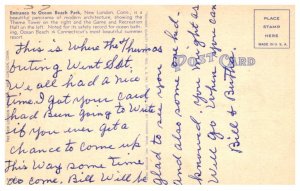 Entrance to Ocean Beach Park, New London, Conn., is a
beautiful panorama of modern architecture, showing the
Theme Tower on the right and the Game and Recreatory
Hall on the left. Famed for its safety records for ocean bath-
ing, Ocean Beach is Connecticut's most beautiful summer
resort.
This is Where the Thomas
outing Went Sat.
We all had a nice
time. I got your card
had Been going to Write
if you ever get a
chance to come up
This Way some time
do come. Bill Will be
glad to see you
and also some one he
knowed. You might as
Well go When you can
Bill & Butler
POST CARD
PLACE
STAMP
HERE
MADE IN U.S.A.